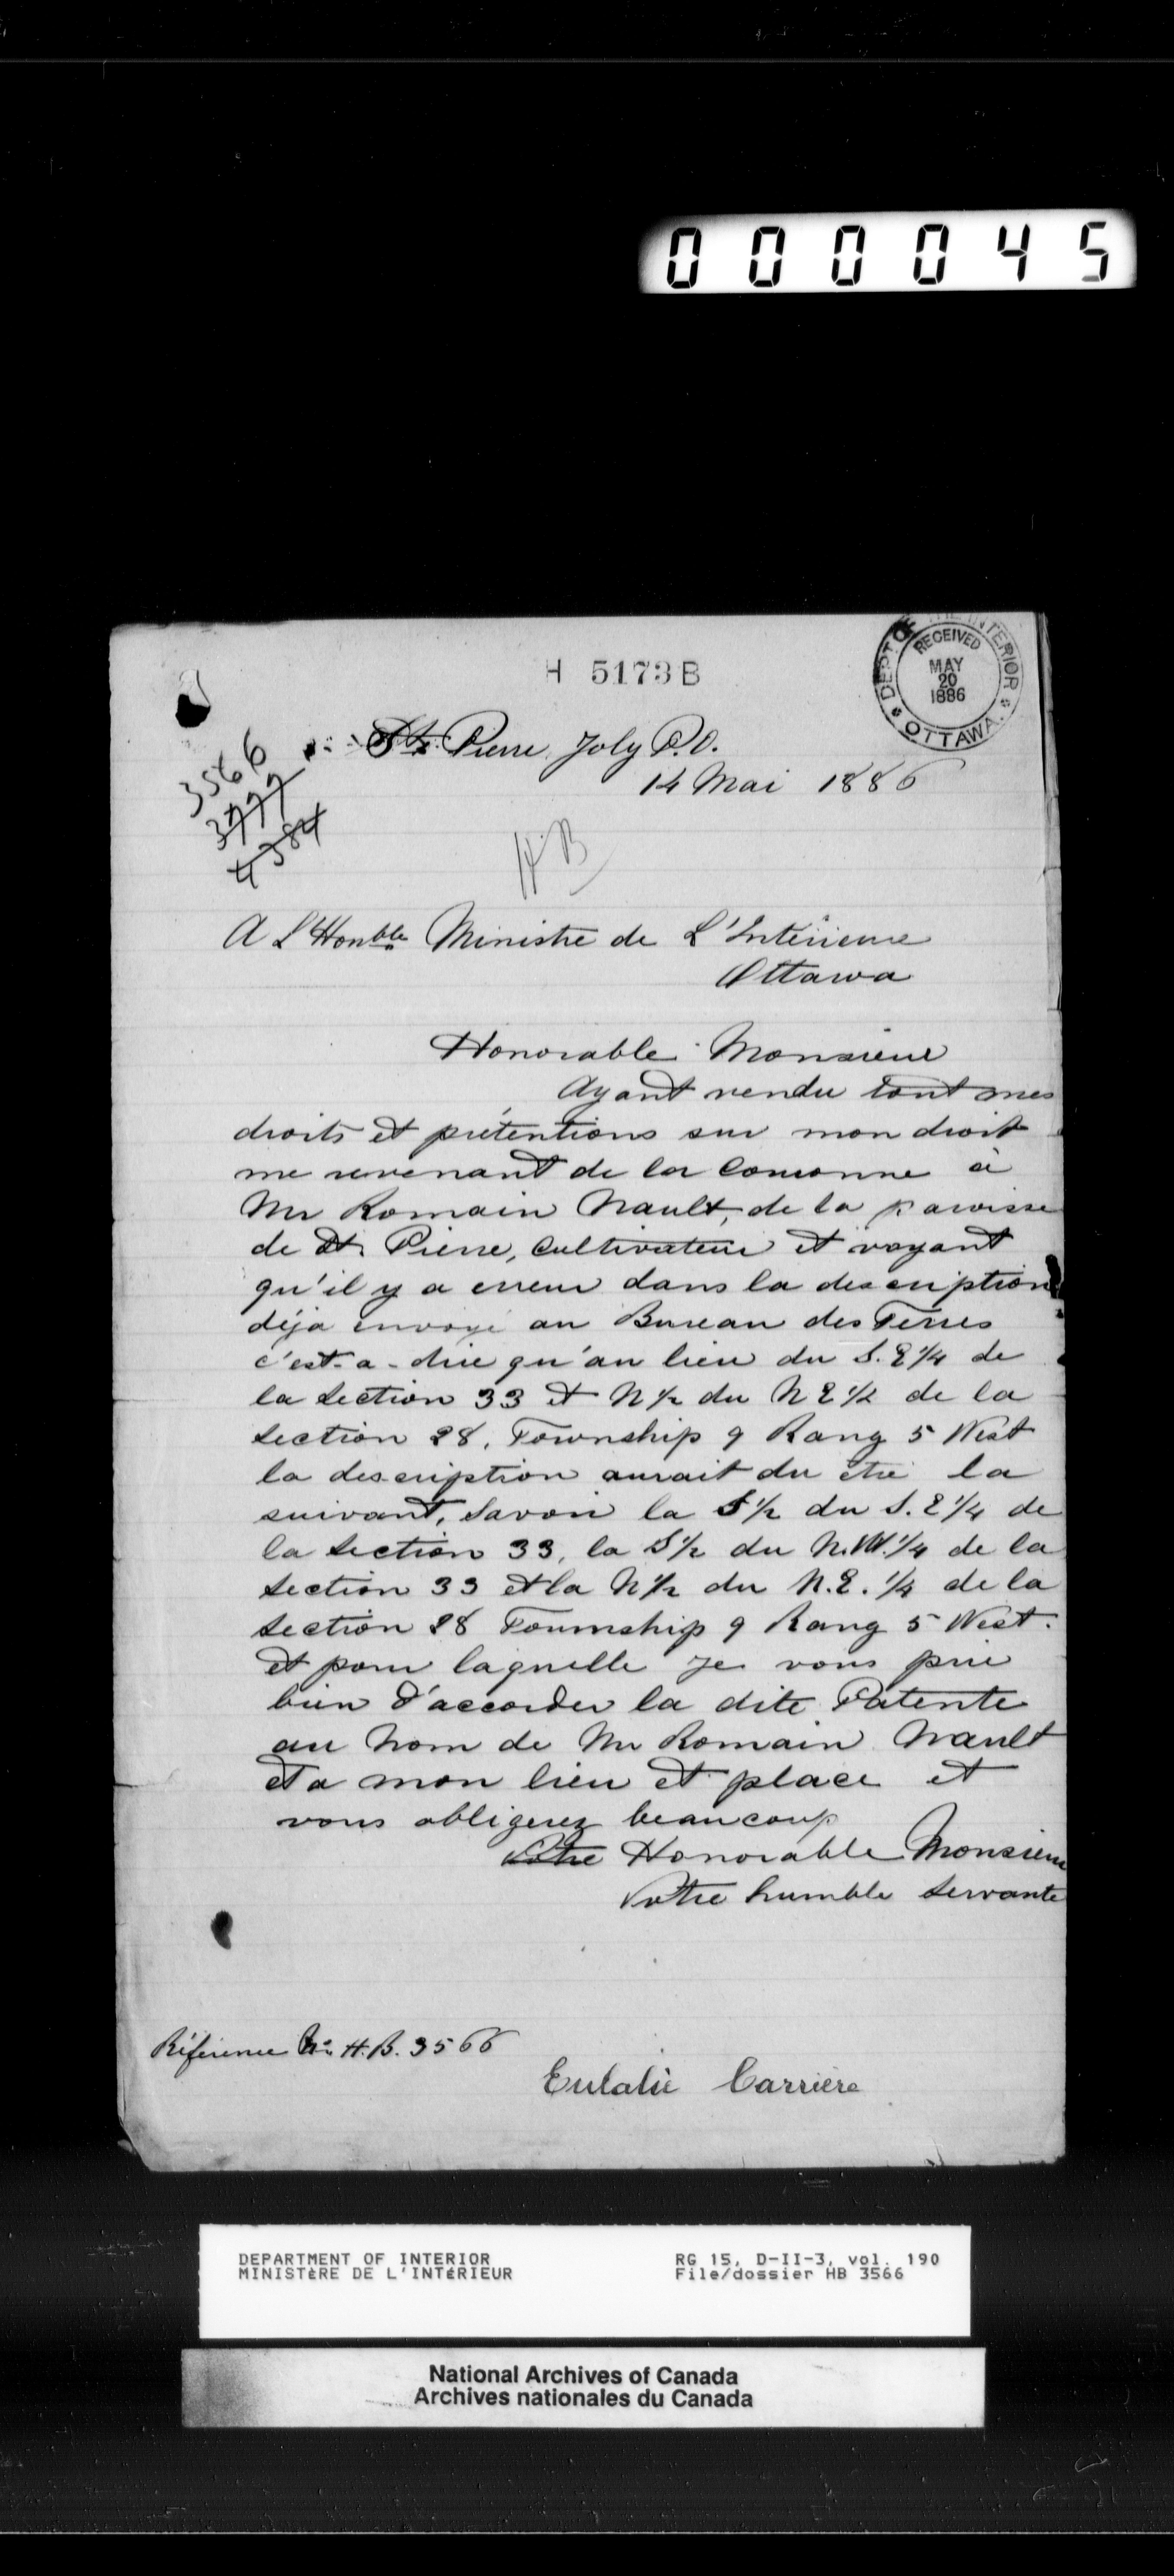 000045
H 5173 B
DEPT. OF THE INTERIOR
RECEIVED
MAY
20
1886
OTTAWA.
St. Pierre Joly P.O.
14 Mai 1886
3566
3777
4384
H.B
A L'Honble Ministre de L'Intérieure
Ottawa
Honorable Monsieur
Ayant vendu tout mes
droits et prétentions sur mon droit
me revenant de la Couronne à
Mr Romain Nault, de la paroisse
de St. Pierre, Cultivateur et voyant
qu'il y a erreur dans la description
déja envoyé au Bureau des Terres
c'est-a-dire qu'au lieu du S.E 1/4 de
la section 33 et N 1/2 du N E 1/2 de la
section 28, Township 9 Rang 5 West
la description aurait du être la
suivant, Savoir la S 1/2 du S.E 1/4 de
la section 33, la S 1/2 du N.W. 1/4 de la
section 33 et la N 1/2 du N.E. 1/4 de la
section 28 Township 9 Rang 5 West.
et pour laquelle je vous prie
bien d'accorder la dite Patente
au nom de Mr Romain Nault
et a mon lieu et place et
vous obligerez beaucoup
Votre Honorable Monsieur
Votre humble servante
Référence No. H.B. 3566
Eulalie Carrière
DEPARTMENT OF INTERIOR
MINISTÈRE DE L'INTÉRIEUR
RG 15, D-II-3, vol. 190
File/dossier HB 3566
National Archives of Canada
Archives nationales du Canada